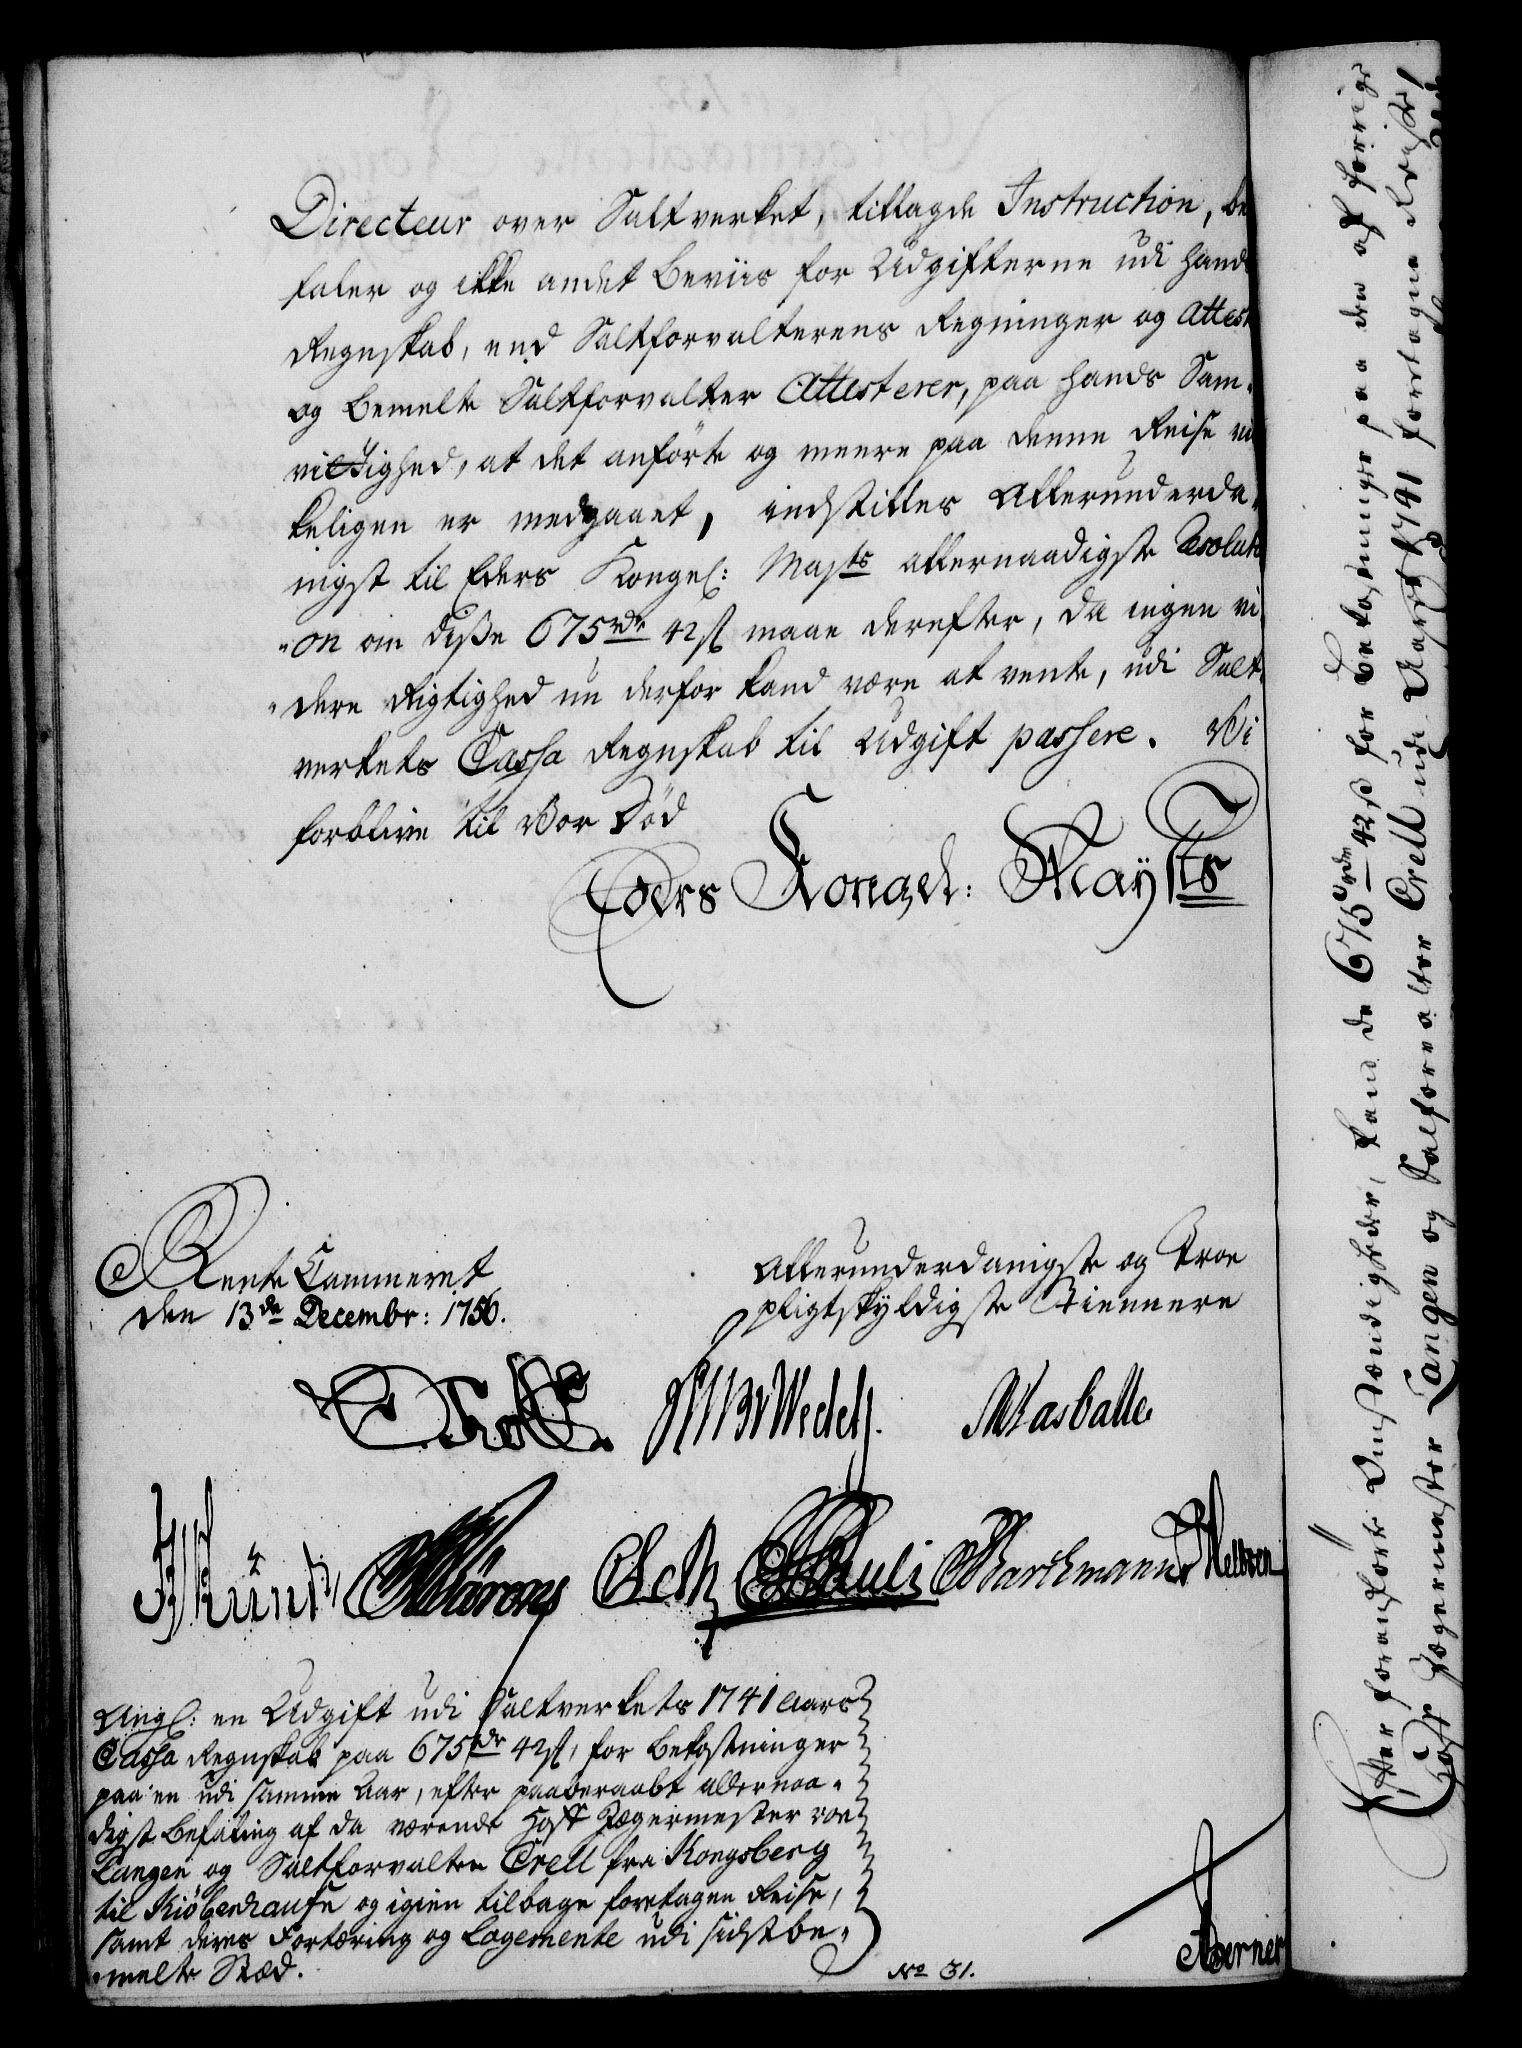 Directeur over Saltverket, tillagde Instruction, be
faler og ikke andet Beviis for Udgifterne udi hands
Regnskab, end Saltforvalterens Regninger og Attest
og bemelte Saltforvalter Attesterer, paa hands Sam-
vittighed, at det anførte og meere paa denne Reise vir
keligen er medgaaet, indstilles allerunderda-
nigst til Eders Kongel: Maysts allernaadigste Resoluti
-on om disse 675 rdr 42 s maae derefter, da ingen vi-
-dere Rigtighed nu derfor kand være at vente, udi Salt-
verkets Cassa Regnskab til Udgift passere. Vi
forblive til vor Død
Eders Kongel: Maysts
Rente Cammeret
den 13de Decembr: 1756.
allerunderdanigste og Troe
pligtskyldigste Tiennere
Wedel
Pauli
Barchmann
Ang: en Udgift udi Saltverkets 1741 Aars
Cassa Regnskab paa 675 rdr 42 s, for bekostninger
paa en udi samme Aar, efter paaberaabt allernaa-
digst befaling af da værende Hoff Jægermester von
Langen og Saltforvalter Crell fra Kongsberg
til Kiøbenhaufn og igien tilbage foretagen Reise,
samt deres Fortæring og Logemente udi sidstbe-
-melte Stæd.
No 31.
Berner
Efter foranførte Omstændigheder, kand de 675 rdr 42 s for bekostninger paa den af forrige
Hoff Jægermester Langen og Saltforvalter Crell udi Aaret 1741 foretagne Reise